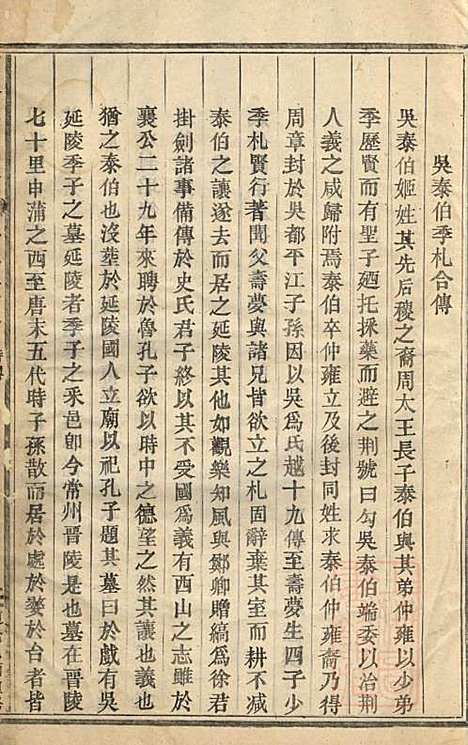 吳泰伯季札合傳
吳泰伯姬姓其先后稷之裔周太王長子泰伯與其弟仲雍以少弟
季歷賢而有聖子廼托採藥而避之荆號曰勾吳泰伯端委以治荆
人義之咸歸附焉泰伯卒仲雍立及後封同姓求泰伯仲雍裔乃得
周章封於吳都平江子孫因以吳爲氏越十九傳至壽夢生四子少
季札賢行著聞父壽夢與諸兄皆欲立之札固辭棄其室而耕不减
泰伯之讓遂去而居之延陵其他如觀樂知風與鄭卿贈縞爲徐君
掛劍諸事備傳於史氏君子終以其不受國爲義有西山之志雖於
襄公二十九年來聘於魯孔子欲以時中之德望之然其讓也亦
猶之泰伯也沒葬於延陵國人立廟以祀孔子題其墓曰於戲有吳
延陵季子之墓延陵者季子之釆邑卽今常州晋陵是也墓在晋陵
七十里申蒲之西至唐末五代時子孫散而居於處於婺於台者皆